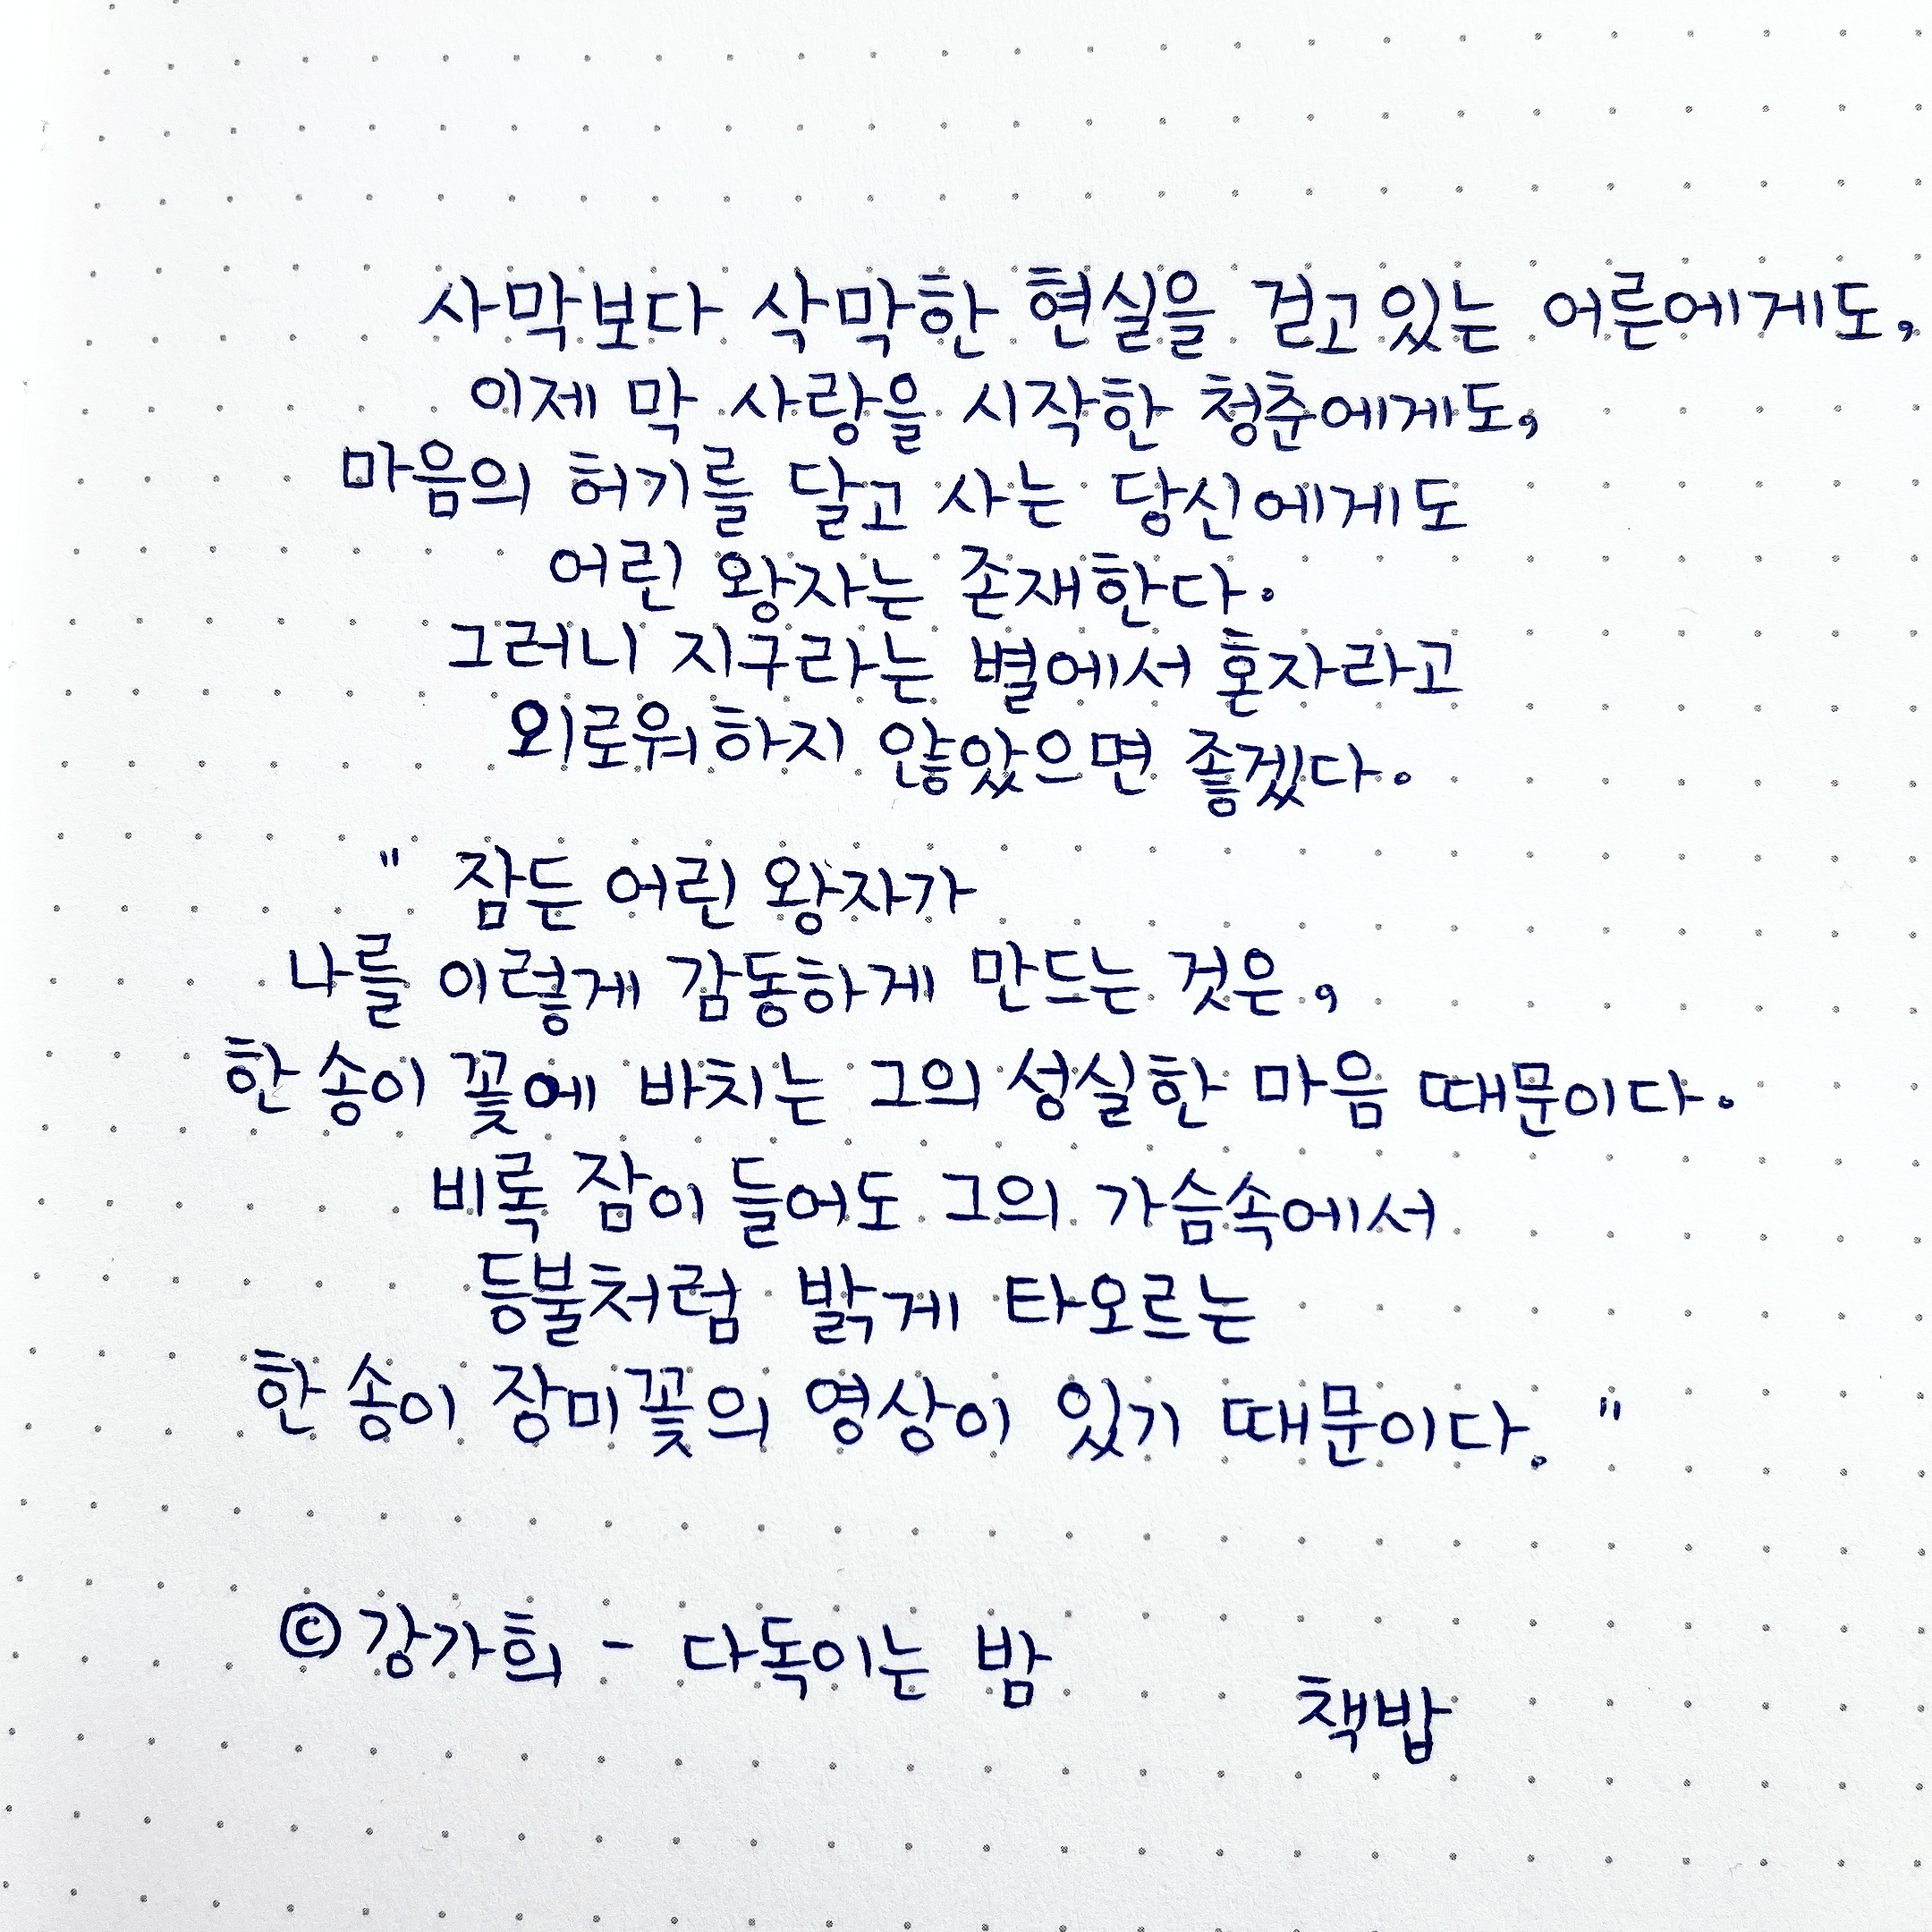 사막보다 삭막한 현실을 걷고 있는 어른에게도,
이제 막 사랑을 시작한 청춘에게도,
마음의 허기를 달고 사는 당신에게도
어린 왕자는 존재한다.
그러니 지구라는 별에서 혼자라고
외로워하지 않았으면 좋겠다.
" 잠든 어린 왕자가
나를 이렇게 감동하게 만드는 것은,
한 송이 꽃에 바치는 그의 성실한 마음 때문이다.
비록 잠이 들어도 그의 가슴속에서
등불처럼 밝게 타오르는
한 송이 장미꽃의 영상이 있기 때문이다. "
© 강가희 - 다독이는 밤
책밥